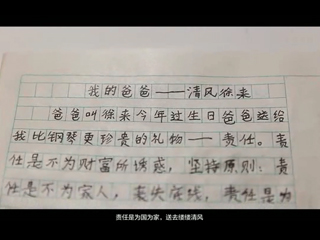 我的爸爸——清风徐来
爸爸叫徐来今年过生日爸爸送给
我比钢琴更珍贵的礼物——责任。责
任是不为财富所诱惑，坚持原则；责
任是不为家人，丧失底线，责任是为
责任是为国为家，送去缕缕清风